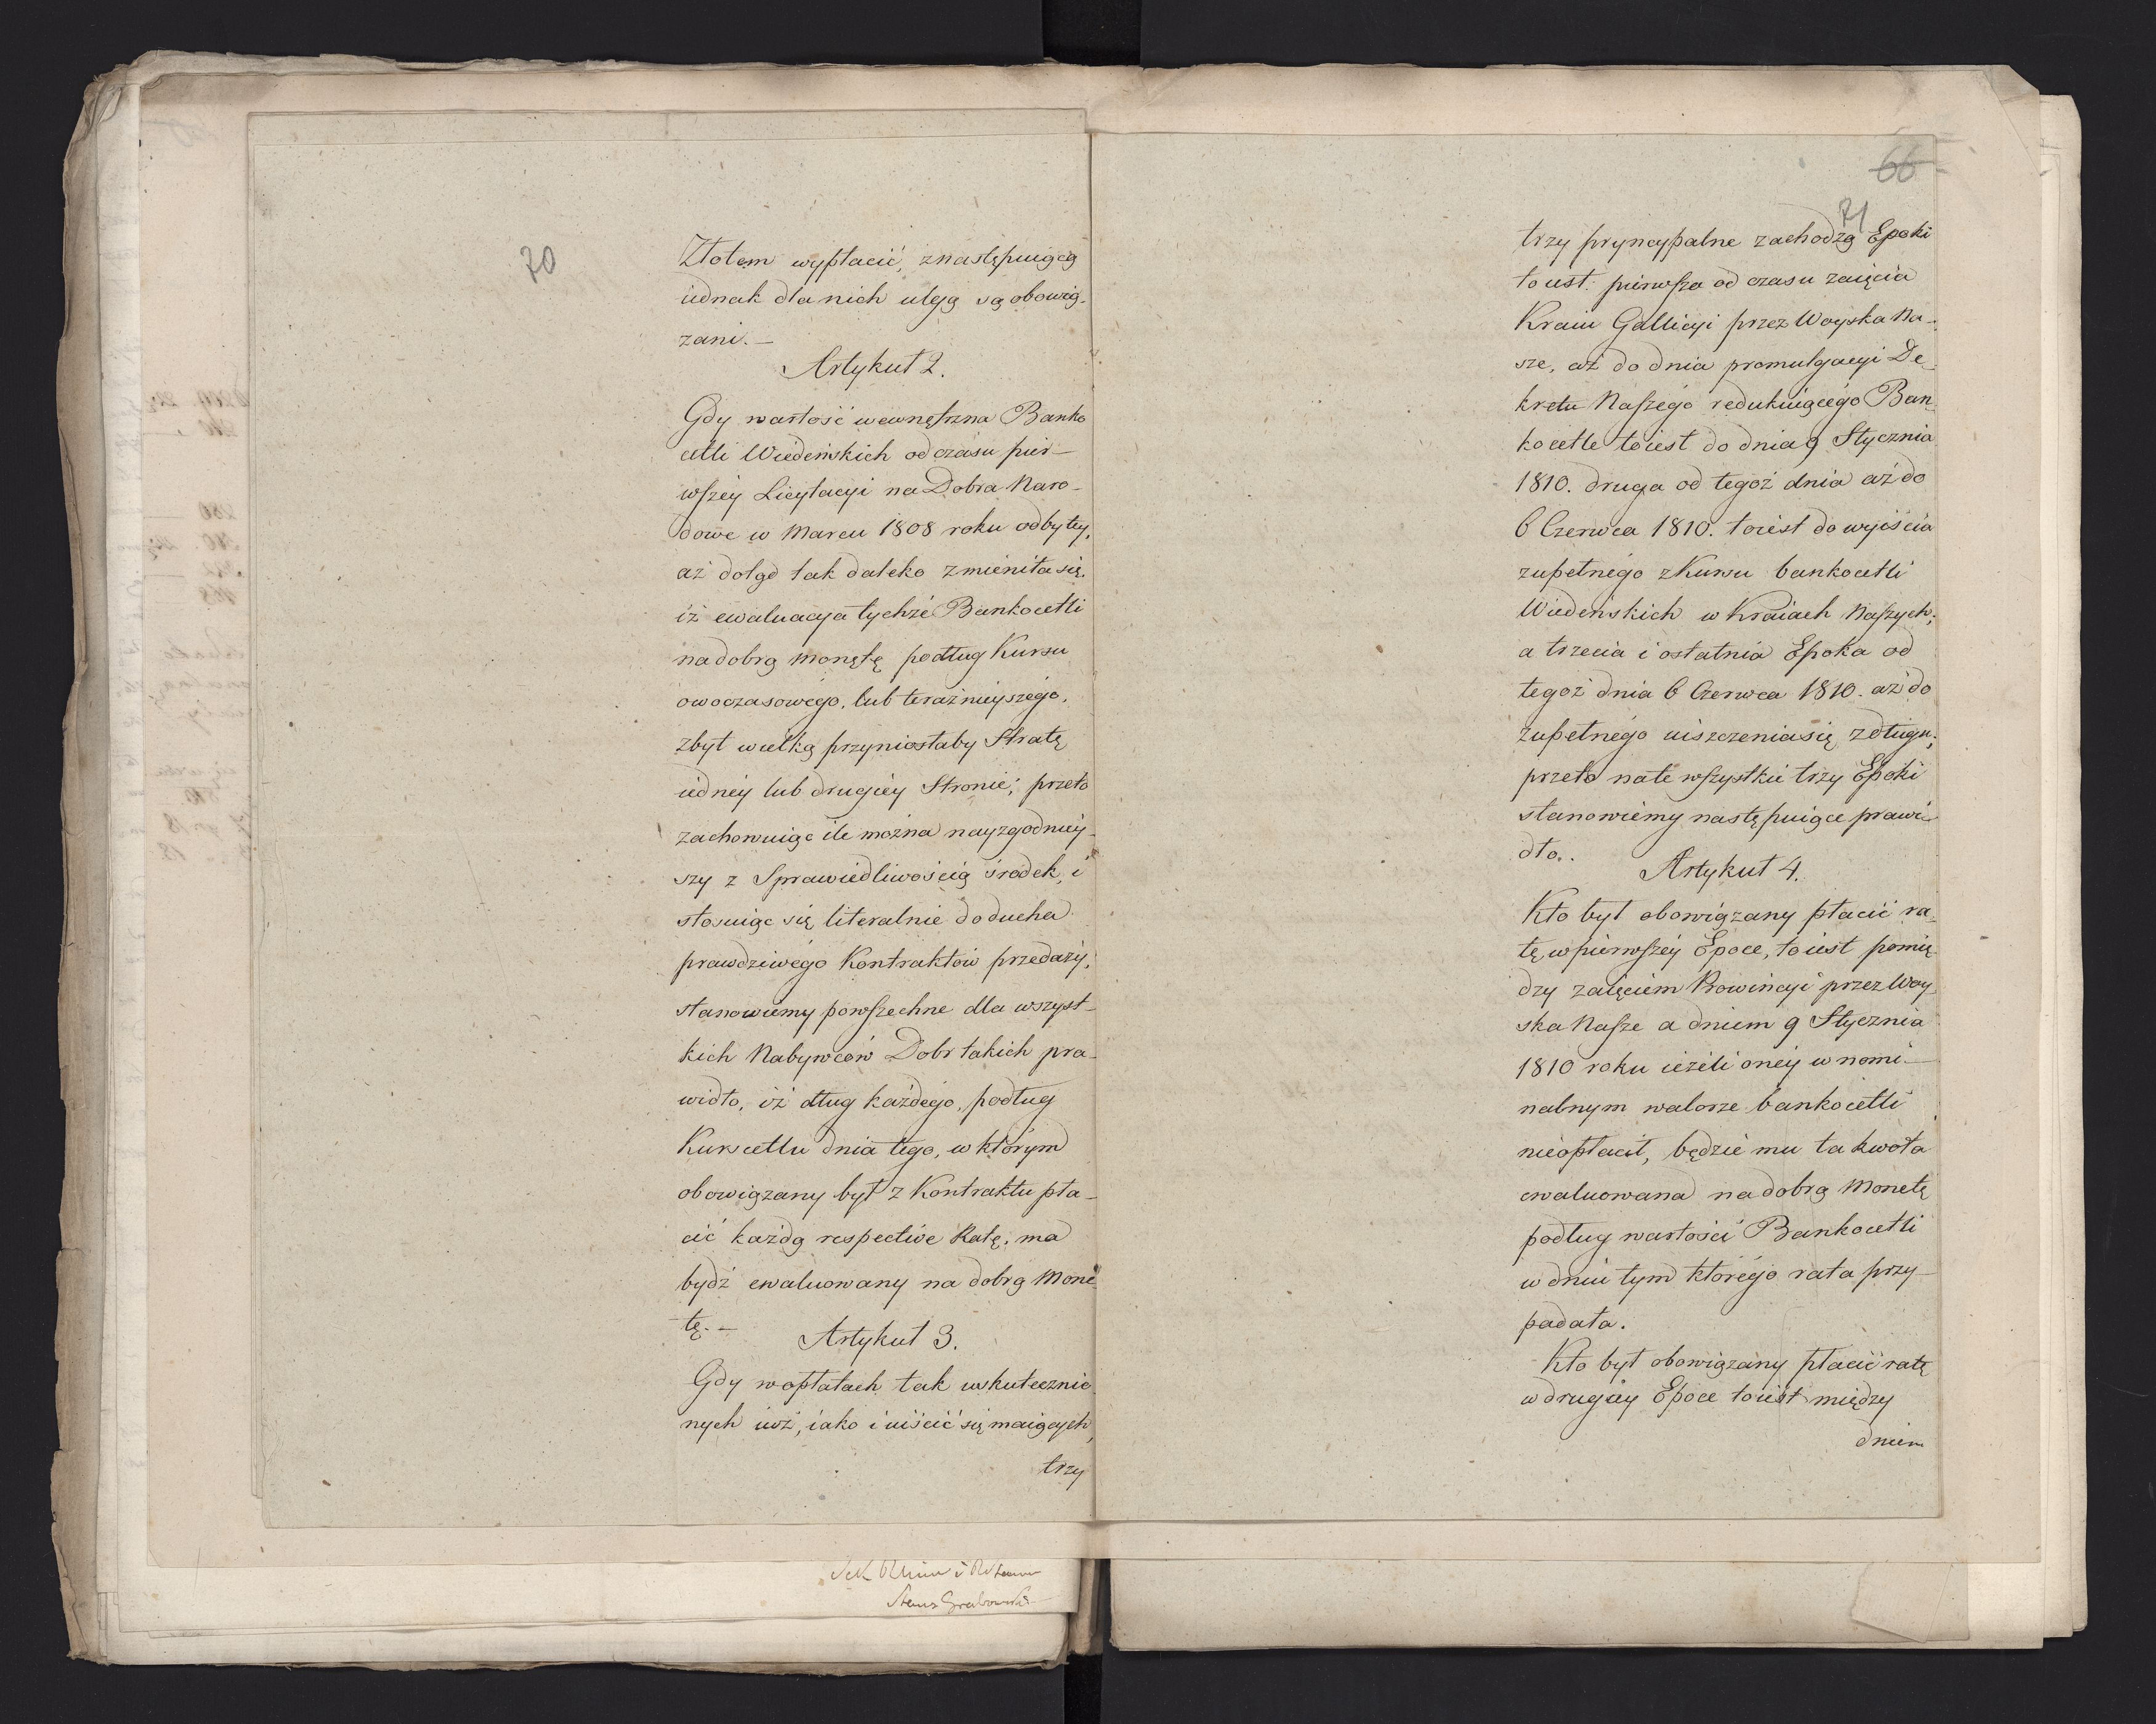 70
Złotem wypłacić, z następuiącą
iednak dla nich ulgą są obowią-
zani.—
Artykuł 2.
Gdy wartość wewnętrzna Banko
cetli Wiedeńskich od czasu pier-
wszéy Licytacyi na Dobra Naro-
dowe w Marcu 1808 roku odbytey,
aż dotąd tak daleko zmieniła się.
iż ewaluacya tychże Bankocetli
na dobrą monętę podług Kursu
owoczasowego, lub teraźnieyszego,
zbyt wielką przyniosłaby Stratę
iednéy lub drugiéy Stronie; przeto
zachowuiąc ile można nayzgodniey-
szy z Sprawiedliwością środek, i
stosuiąc się literalnie do ducha
prawdziwego Kontraktów przedaży,
stanowiemy powszechne dla wszyst-
kich Nabywców Dobr takich pra-
widło, iż dług każdego, podług
Kurscetlu dnia tego, w którym
obowiązany był z Kontraktu pła-
cić każdą respective Ratę, ma
bydź ewaluowany na dobrą Mone
tę.—
Artykuł 3.
Gdy w opłatach tak uskutecznio
nych iuż, iako i uiścić się maiących,
trzy
Stanis Grabowski
66
71
trzy pryncypalne zachodzą Epoki
to iest: pierwsza od czasu zaięcia
Kraiu Gallicyi przez Woyska Na-
sze, aż do dnia promulgacyi De-
kretu Naszego redukuiącego Ban-
kocetle to iest do dnia 9 Stycznia
1810. druga od tegoż dnia aż do
6 Czerwca 1810. to iest do wyiścia
zupełnego z Kursu bankocetli
Wiedeńskich w Kraiach Naszych;
a trzecia i ostatnia Epoka od
tegoż dnia 6 Czerwca 1810. aż do
zupełnego uiszczenia się z długu;
przeto na te wszystkie trzy Epoki
stanowiemy następuiące prawi-
dło.
Artykuł 4.
Kto był obowiązany płacić ra-
tę w pierwszéy Epoce, to iest pomię
dzy zaięciem Prowincyi przez Woy-
ska Nasze a dniem 9 Stycznia
1810 roku ieżeli onéy w nomi-
nalnym walorze bankocetli
nieopłacił, będzie mu ta kwota
ewaluowana na dobrą Monetę
podług wartości Bankocetli
w dniu tym którego rata przy-
padała.
Kto był obowiązany płacić ratę
w drugiéy Epoce to iest między
dniem